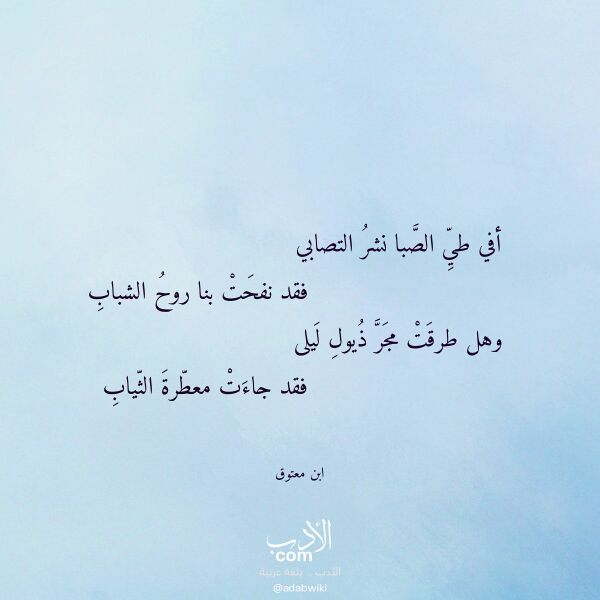 أفي طيِّ الصَّبا نشرُ التصابي
فقد نفحَتْ بنا روحُ الشبابِ
وهل طرقَتْ مجَرَّ ذُيولِ لَيلى
فقد جاءَتْ معطّرةَ الثّيابِ
ابن معتوق
الأدب
com
الأدب .. بلغة عربية
@adabwiki